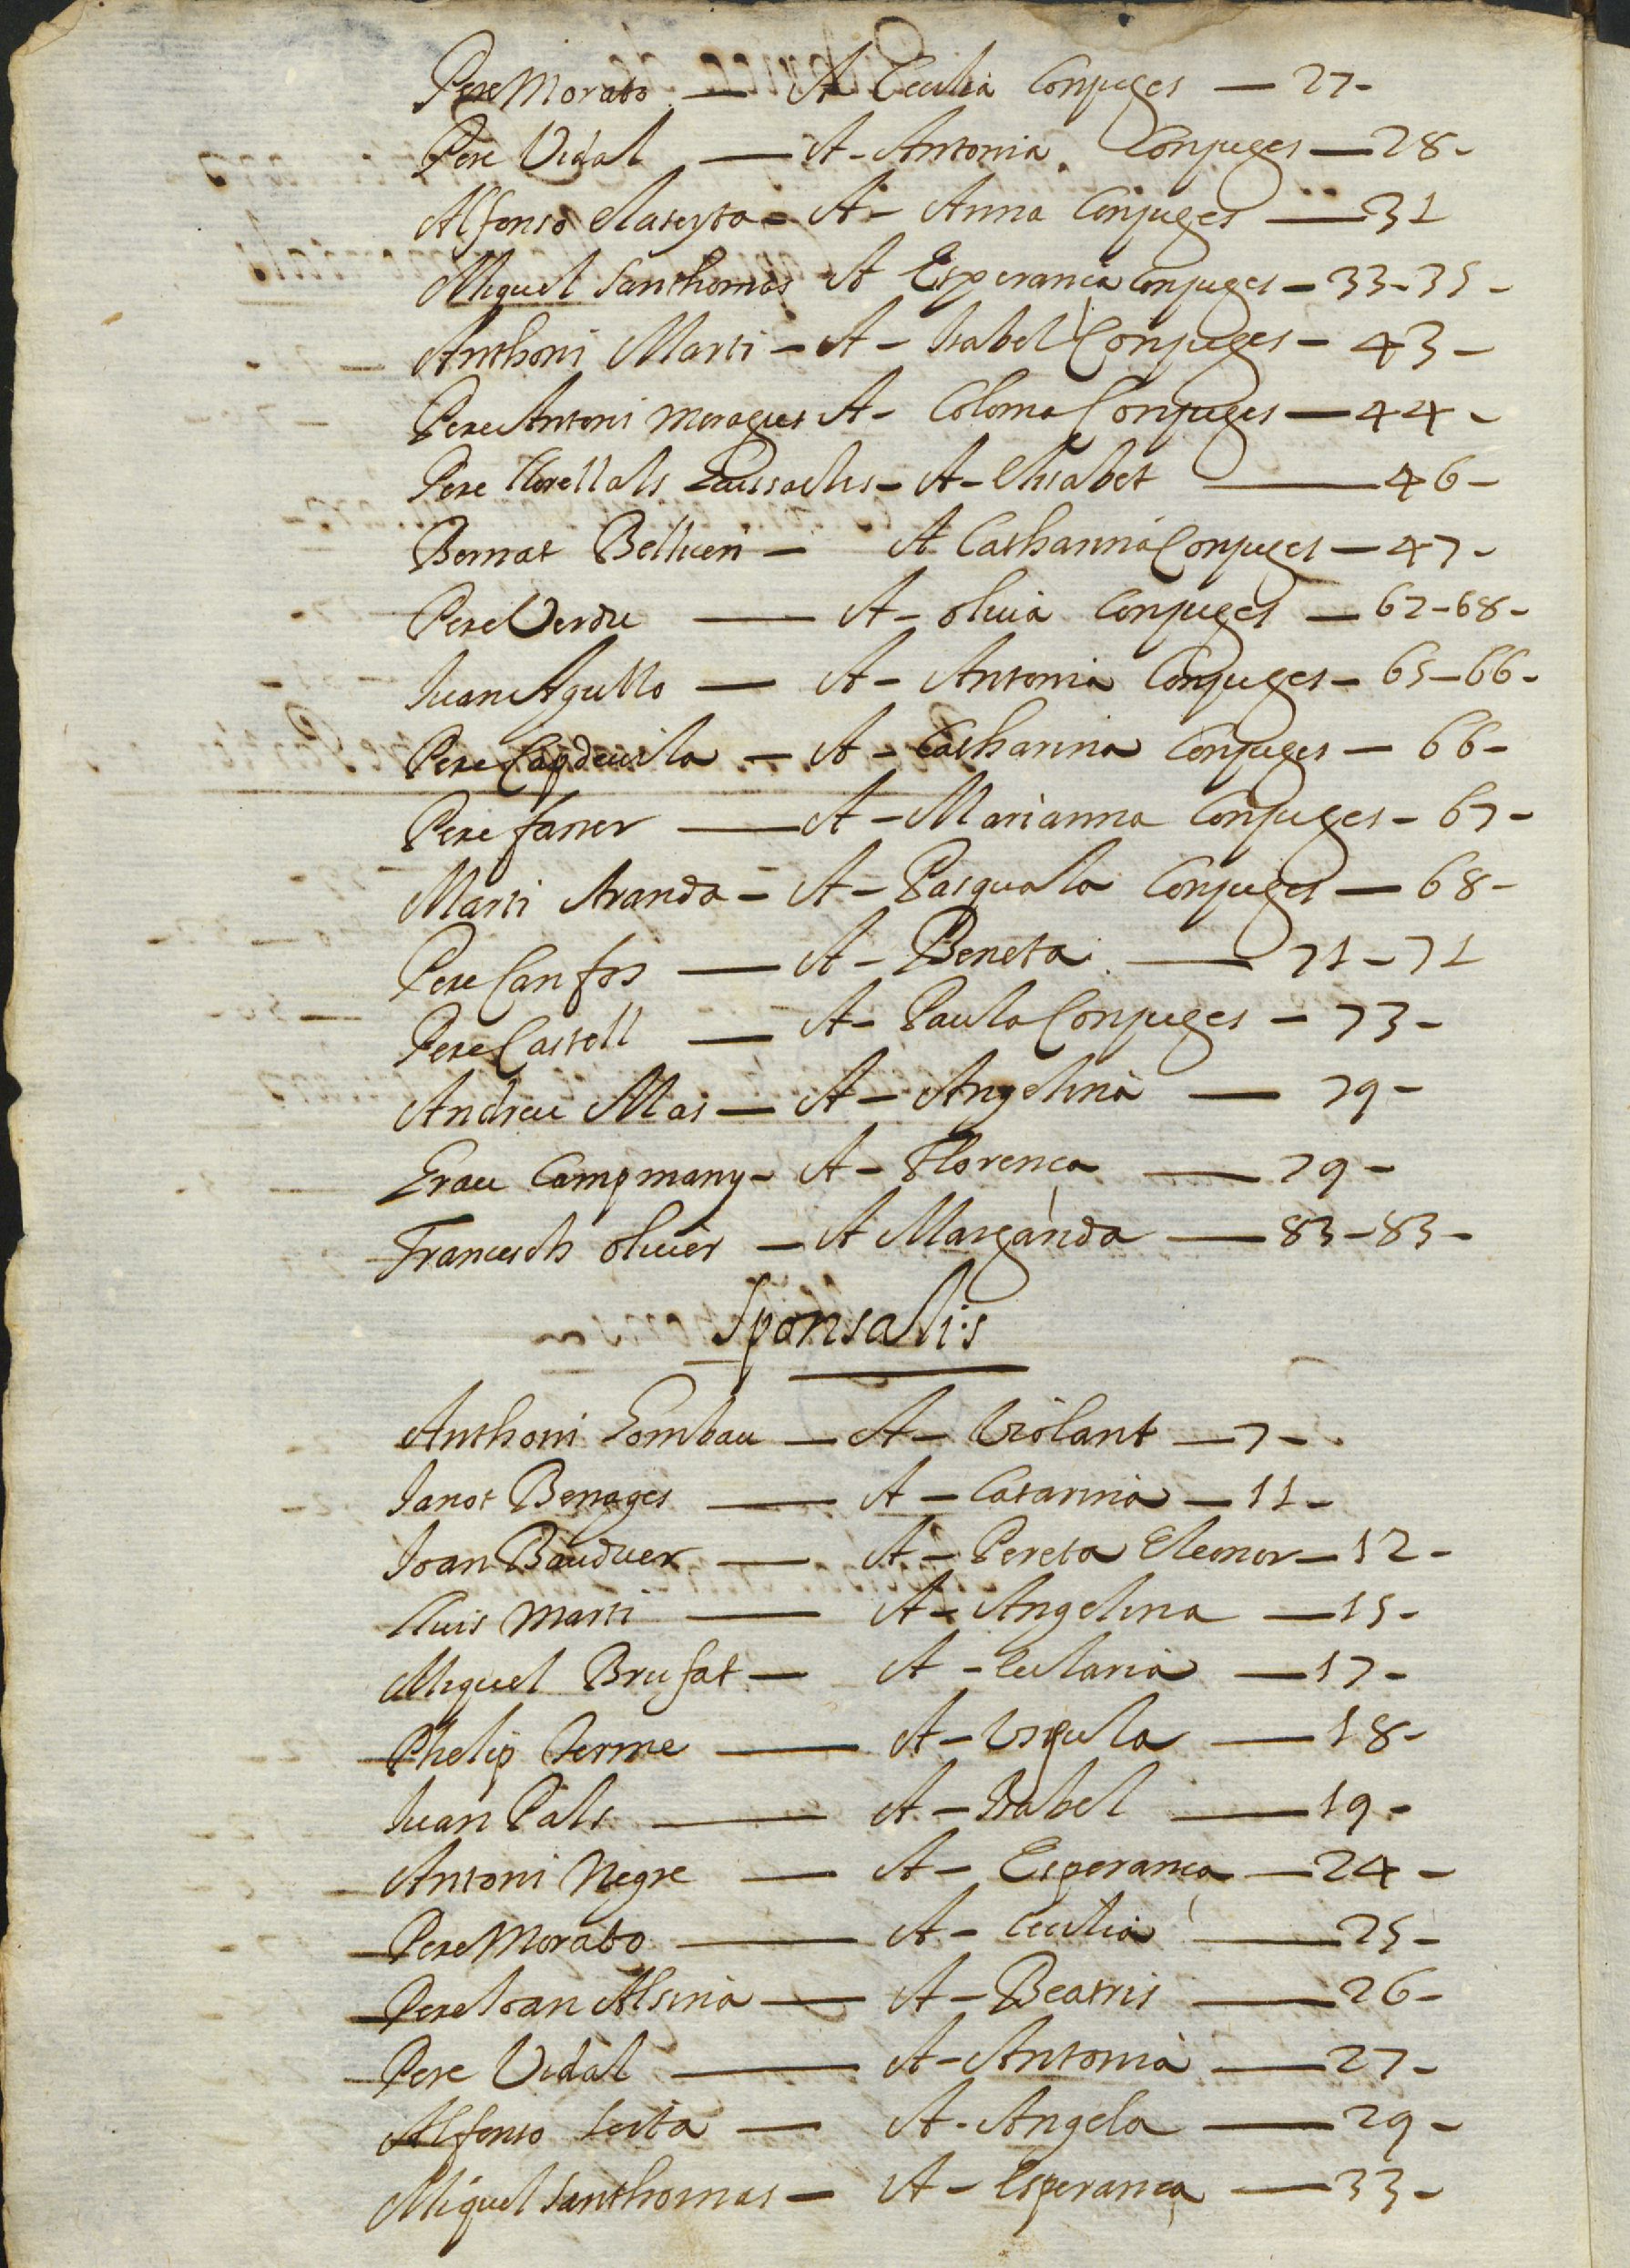 Pere Morato — A Cecilia Conjuges — 27-
Pere Vidal — A - Antonia Conjuges — 28-
Alfonso — A - Anna Conjuges — 31
Miquel Santhomas A Esperança Conjuges — 33-35-
Anthoni Marti - A - Isabel Conjuges - 43-
Pere Antoni Moragues A - Coloma Conjuges — 44-
Pere - A - Elisabet — 46-
Bernat Bellveri - A Catharina Conjuges — 47-
Pere Verdu — A - Oliuia Conjuges — 67-68-
Juan Agullo — A - Antonia Conjuges - 65-66-
Pere Capdeuila — A - Catharina Conjuges — 66-
Pere faner — A - Marianna Conjuges - 67-
Marti Aranda - A - Pasquala Conjuges — 68-
Pere Canfos — A - Beneta — 71-71
Pere Castell — A - Paula Conjuges — 73-
Andreu Mas — A - Angelina — 79-
Grau Campmany - A - Florença — 79-
Francesch Oliuer — A Margarida — 83-83-
Sponsalis
Anthoni Gombau — A - Violant — 7-
Janot Benages — A - Catarina — 11-
Joan Bauduer — A - Pereta Eleonor — 12-
Lluis Marti — A - Angelina — 15-
Miquel Brufat — A - Eularia — 17-
Phelip Ferrne — A - Vrsula — 18-
Juan Pals — A - Isabel — 19-
Antoni Negre — A - Esperança — 24-
Pere Morato — A - Cecilia — 25-
Pere Joan Alsina — A - Beatris — 26-
Pere Vidal — A - Antonia — 27-
Alfonso — A - Angela — 29-
Miquel Santhomas — A - Esperança — 33-